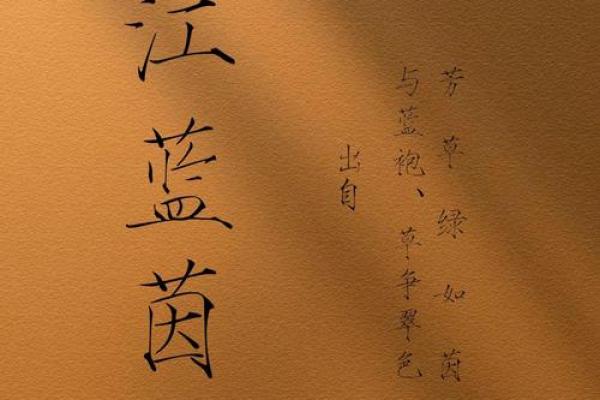 芳草绿如茵
与蓝袍、草争翠色
出自
江蓝茵